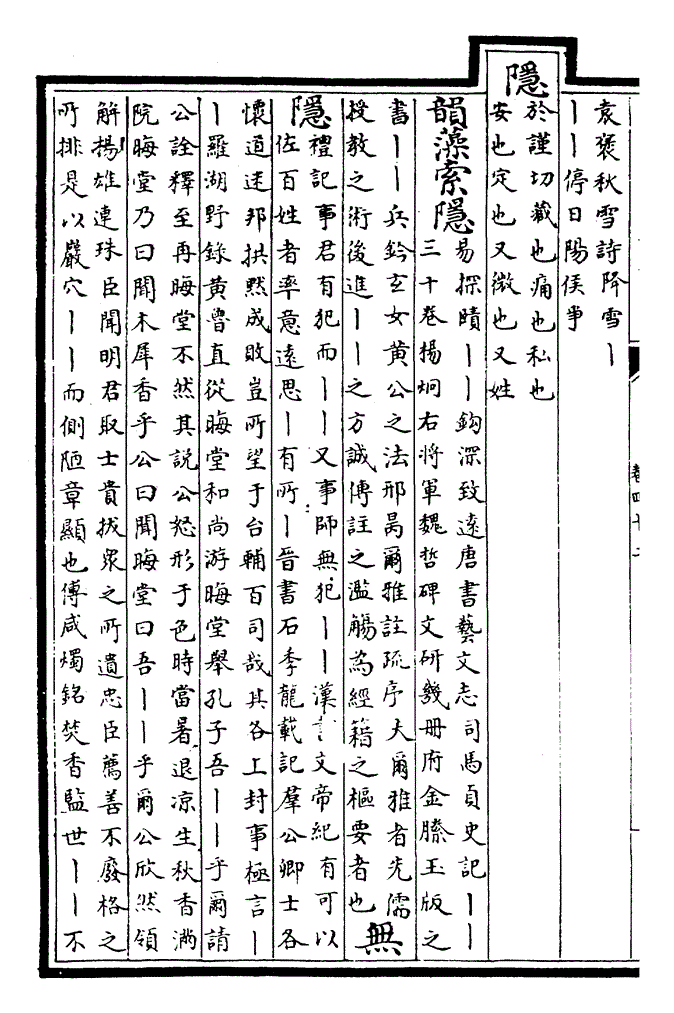 袁褒秋雪詩降雪丨
丨丨停日陽侯事
隱
於謹切藏也痛也私也
安也定也又微也又姓
韻藻索隱
易探賾丨丨鈎深致遠唐書藝文志司馬貞史記丨丨
三十卷楊炯右將軍魏哲碑文研幾冊府金縢玉版之
書丨丨兵鈐玄女黃公之法邢昺爾雅註疏序夫爾雅者先儒
授教之術後進丨丨之方誠傳註之濫觴為經籍之樞要者也
無隱
禮記事君有犯而丨丨又事師無犯丨丨漢書文帝紀有可以
佐百姓者率意遠思丨有所丨晉書石季龍載記羣公卿士各
懷道迷邦拱默成敗豈所望于台輔百司哉其各上封事極言丨
丨羅湖野錄黃魯直從晦堂和尚游晦堂舉孔子吾丨丨乎爾請
公詮釋至再晦堂不然其說公怒形于色時當暑退凉生秋香滿
院晦堂乃曰聞木犀香乎公曰聞晦堂曰吾丨丨乎爾公欣然領
解揚雄連珠臣聞明君取士貴拔衆之所遺忠臣薦善不廢格之
所排是以巖穴丨丨而側陋章顯也傅咸燭銘焚香監世丨丨不
卷四十二